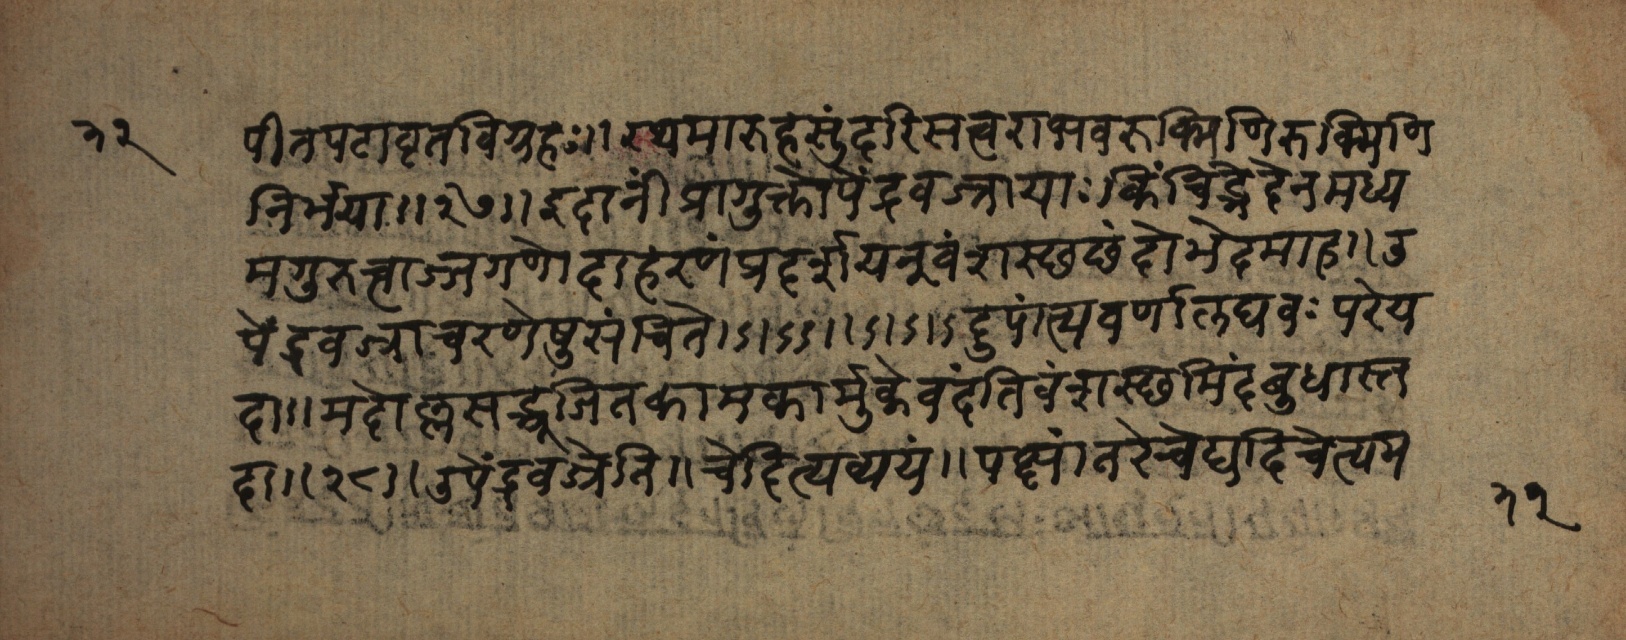 ३२ पीतपटावृतविग्रहः।। रथ्यमारुहसुंदरिसत्वराभवरुक्मिणिरुक्मिणि
निर्भया।।२७।। इदानीं प्रागुक्तोपेंद्रवज्रायाः किंचिद्भेदेनमध्य
मगुरुत्वाज्जगणोदाहरणं प्रदर्शयन्वंशस्छछंदोभेदमाह।।उ
पेंद्रवज्राचरणेषुसंचिते।ऽ।ऽऽ।।ऽ।ऽ।ऽ द्रुपांत्यवर्णालघवः परेय
दा।।मदोल्लसद्भ्रूजितकामकार्मुकेवदंतिवंशस्छमिदंबुधास्त
दा।।२८।।उपेंद्रवज्रेति।।चेदित्यव्ययं।।पक्षांतरेचेद्यदिचेत्यम
३२